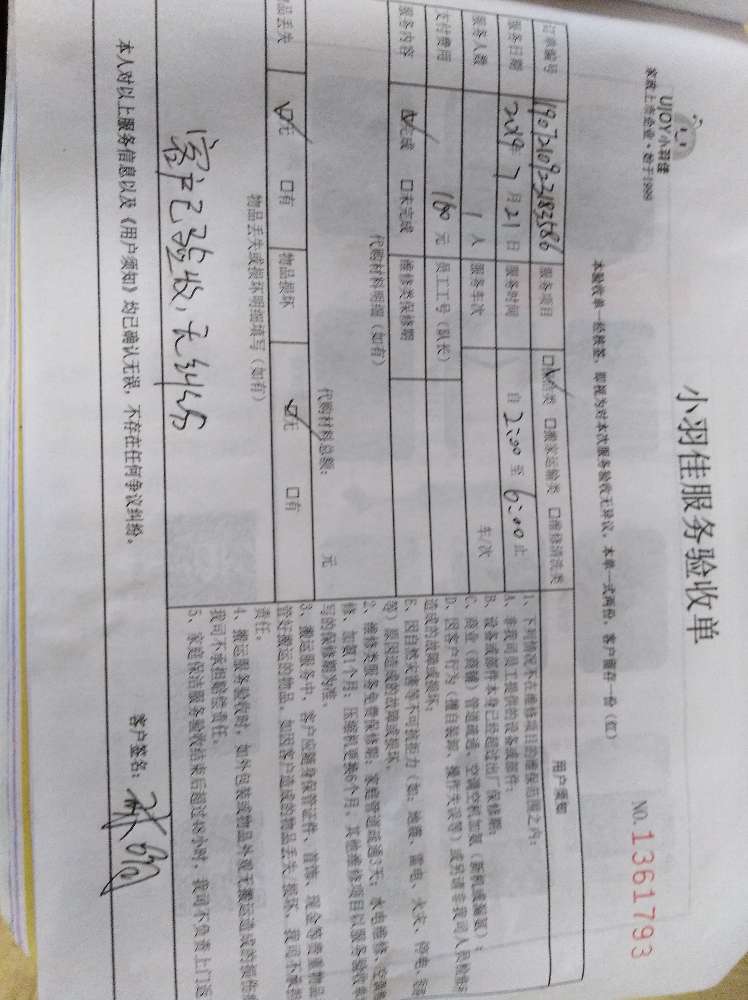 UJOY小羽佳
家政上市企业·始于1999
小羽佳服务验收单
NO.1361793
本验收单一经核签，即视为对本次服务验收无异议，本单一式两份，客户留存一份（红）
订单编号 1907210922183586 服务项目 ☑保洁类 □搬家运输类 □维修清洗类
服务日期 2019年7月21日 服务时间 自2:00至6:00止
服务人数 1人 服务车次 车/次
支付费用 160元 员工工号（队长）
服务内容 ☑完成 □未完成 维修类保修期
代购材料明细（如有）
代购材料总额： 元
物品丢失 ☑无 □有 物品损坏 ☑无 □有
物品丢失或损坏明细填写（如有）
客户已验收，无纠纷
用户须知
1、下列情况不在维修项目的维保范围之内：
A、非我司员工提供的设备或部件；
B、设备或部件本身已经超过出厂保修期；
C、商业（商铺）管道疏通、空调空机加氨（新机或漏氨）；
D、因客户行为（擅自装卸、操作失误等）或另请非我司人员检修
造成的故障或损坏；
E、因自然灾害等不可抗拒力（如：地震、雷电、火灾、停电、
等）原因造成的故障或损坏；
2、维修类服务免费保修期：家庭管道疏通3天；水电维修、空调
修、加氨1个月；压缩机更换6个月，其他维修项目以服务验收单
写的保修期为准。
3、搬运服务中，客户应随身保管证件、首饰、现金等贵重物品
管好搬运的物品，如因客户造成的物品丢失、损坏，我司不承担
责任。
4、搬运服务验收时，如外包装或物品外观无搬运造成的损伤
我司不承担赔偿责任。
5、家庭保洁服务验收结束后超过48小时，我司不负责上门返
本人对以上服务信息以及《用户须知》均已确认无误，不存在任何争议纠纷。
客户签名：